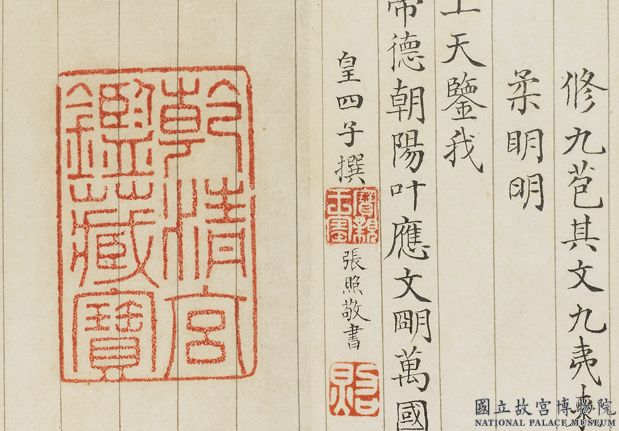 修九苞其文九夷
柔眀明
上天鑒我
帝德朝陽叶應文眀萬國
皇四子撰
寶親
王寶
張照敬書
乾清宮
鑑藏寶
國立故宮博物院
NATIONAL PALACE MUSEUM